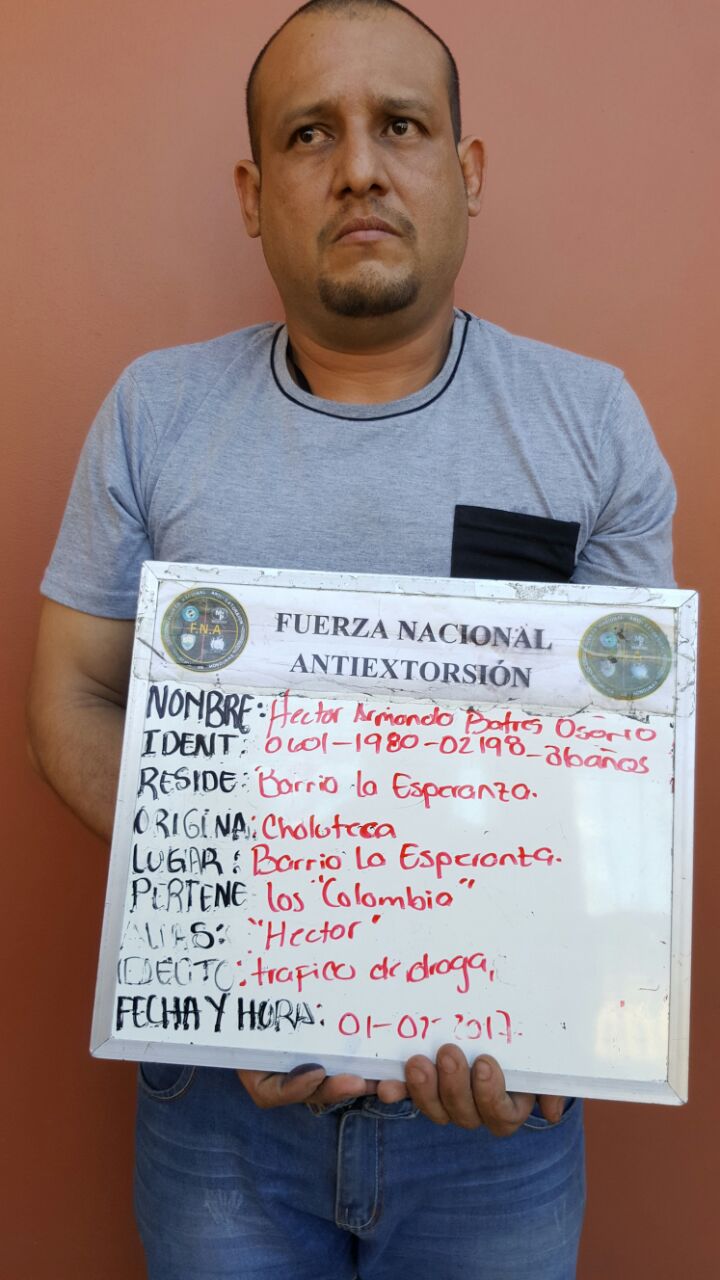 FUERZA NACIONAL
ANTIEXTORSIÓN
F.N.A
NOMBRE: Hector Armando Batres Osorio
IDENT: 0601-1980-02198-36años
RESIDE: Barrio la Esperanza.
ORIGINA: Choluteca
LUGAR: Barrio La Esperanza.
PERTENE los "Colombia"
ALIAS: "Hector"
DELITO: trafico de droga,
FECHA Y HORA: 2017.